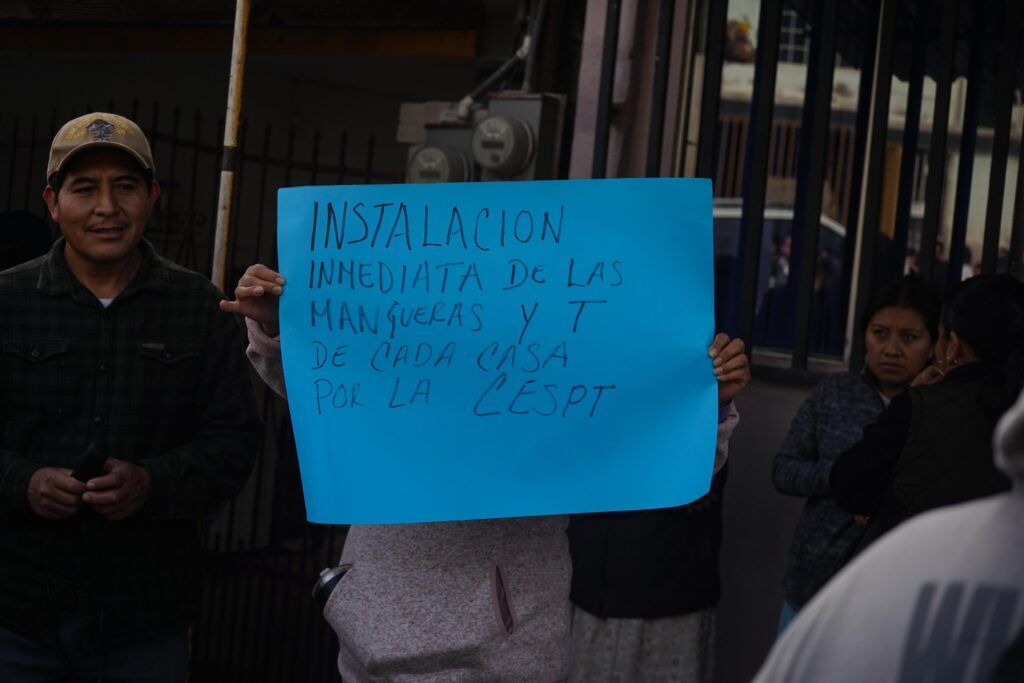 INSTALACION
INMEDIATA DE LAS
MANGUERAS Y T
DE CADA CASA
POR LA CESPT